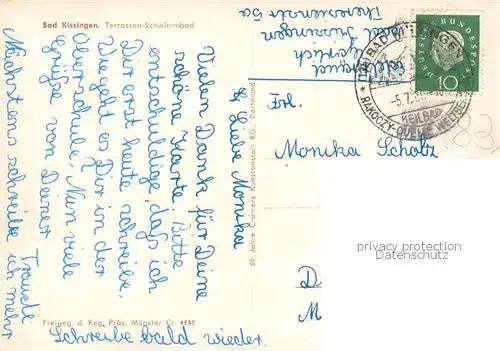 Bad Kissingen. Terrassen-Schwimmbad
Liebe Monika
Vielen Dank für Deine
schöne Karte. Bitte
entschuldige, daß ich
Dir erst heute schreibe.
Wie geht es Dir in der
Oberschule? Nun viele
Grüße von Deiner
Traude
Nächstens schreibe ich mehr
Schreibe bald wieder.
Freigeg. d. Reg. Präs. Münster Cr. 4232
60 Jahre Cramers Kunstanstalt KG., Dortmund
Bad Kissingen
Theresienstr. 5a
DEUTSCHE BUNDESPOST
10
BAD KISSINGEN
-5.7.60
HEILBAD
RAKOCZY-QUELLE
Frl.
Monika Scholz
D
M
83
privacy protection
Datenschutz